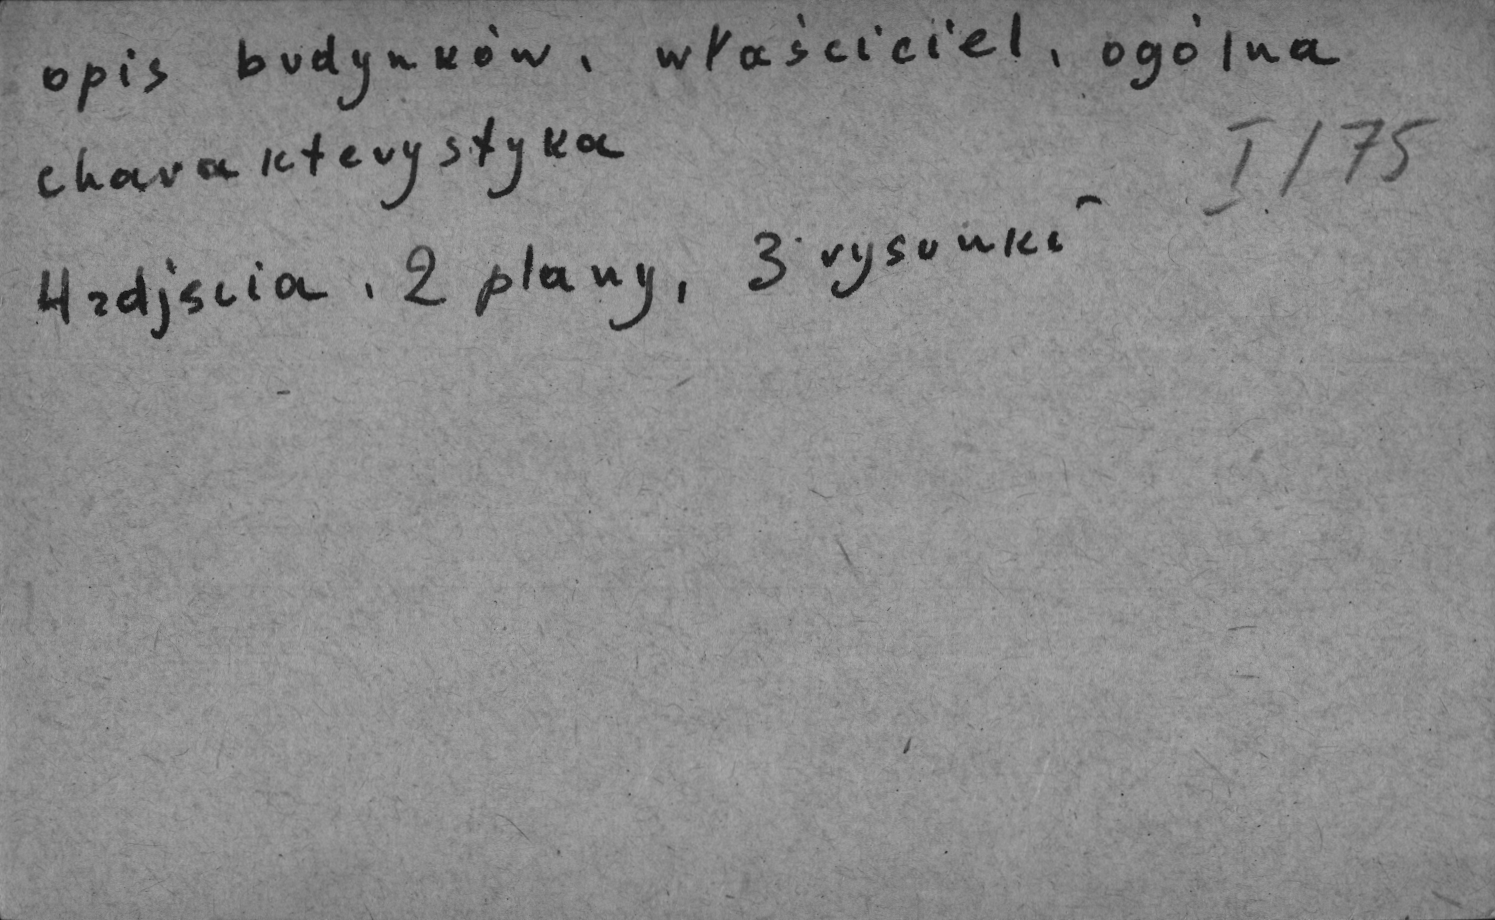 opis budynków, właściciel, ogólna
charakterystyka
I/75
4 zdjścia, 2 plany, 3 rysunki